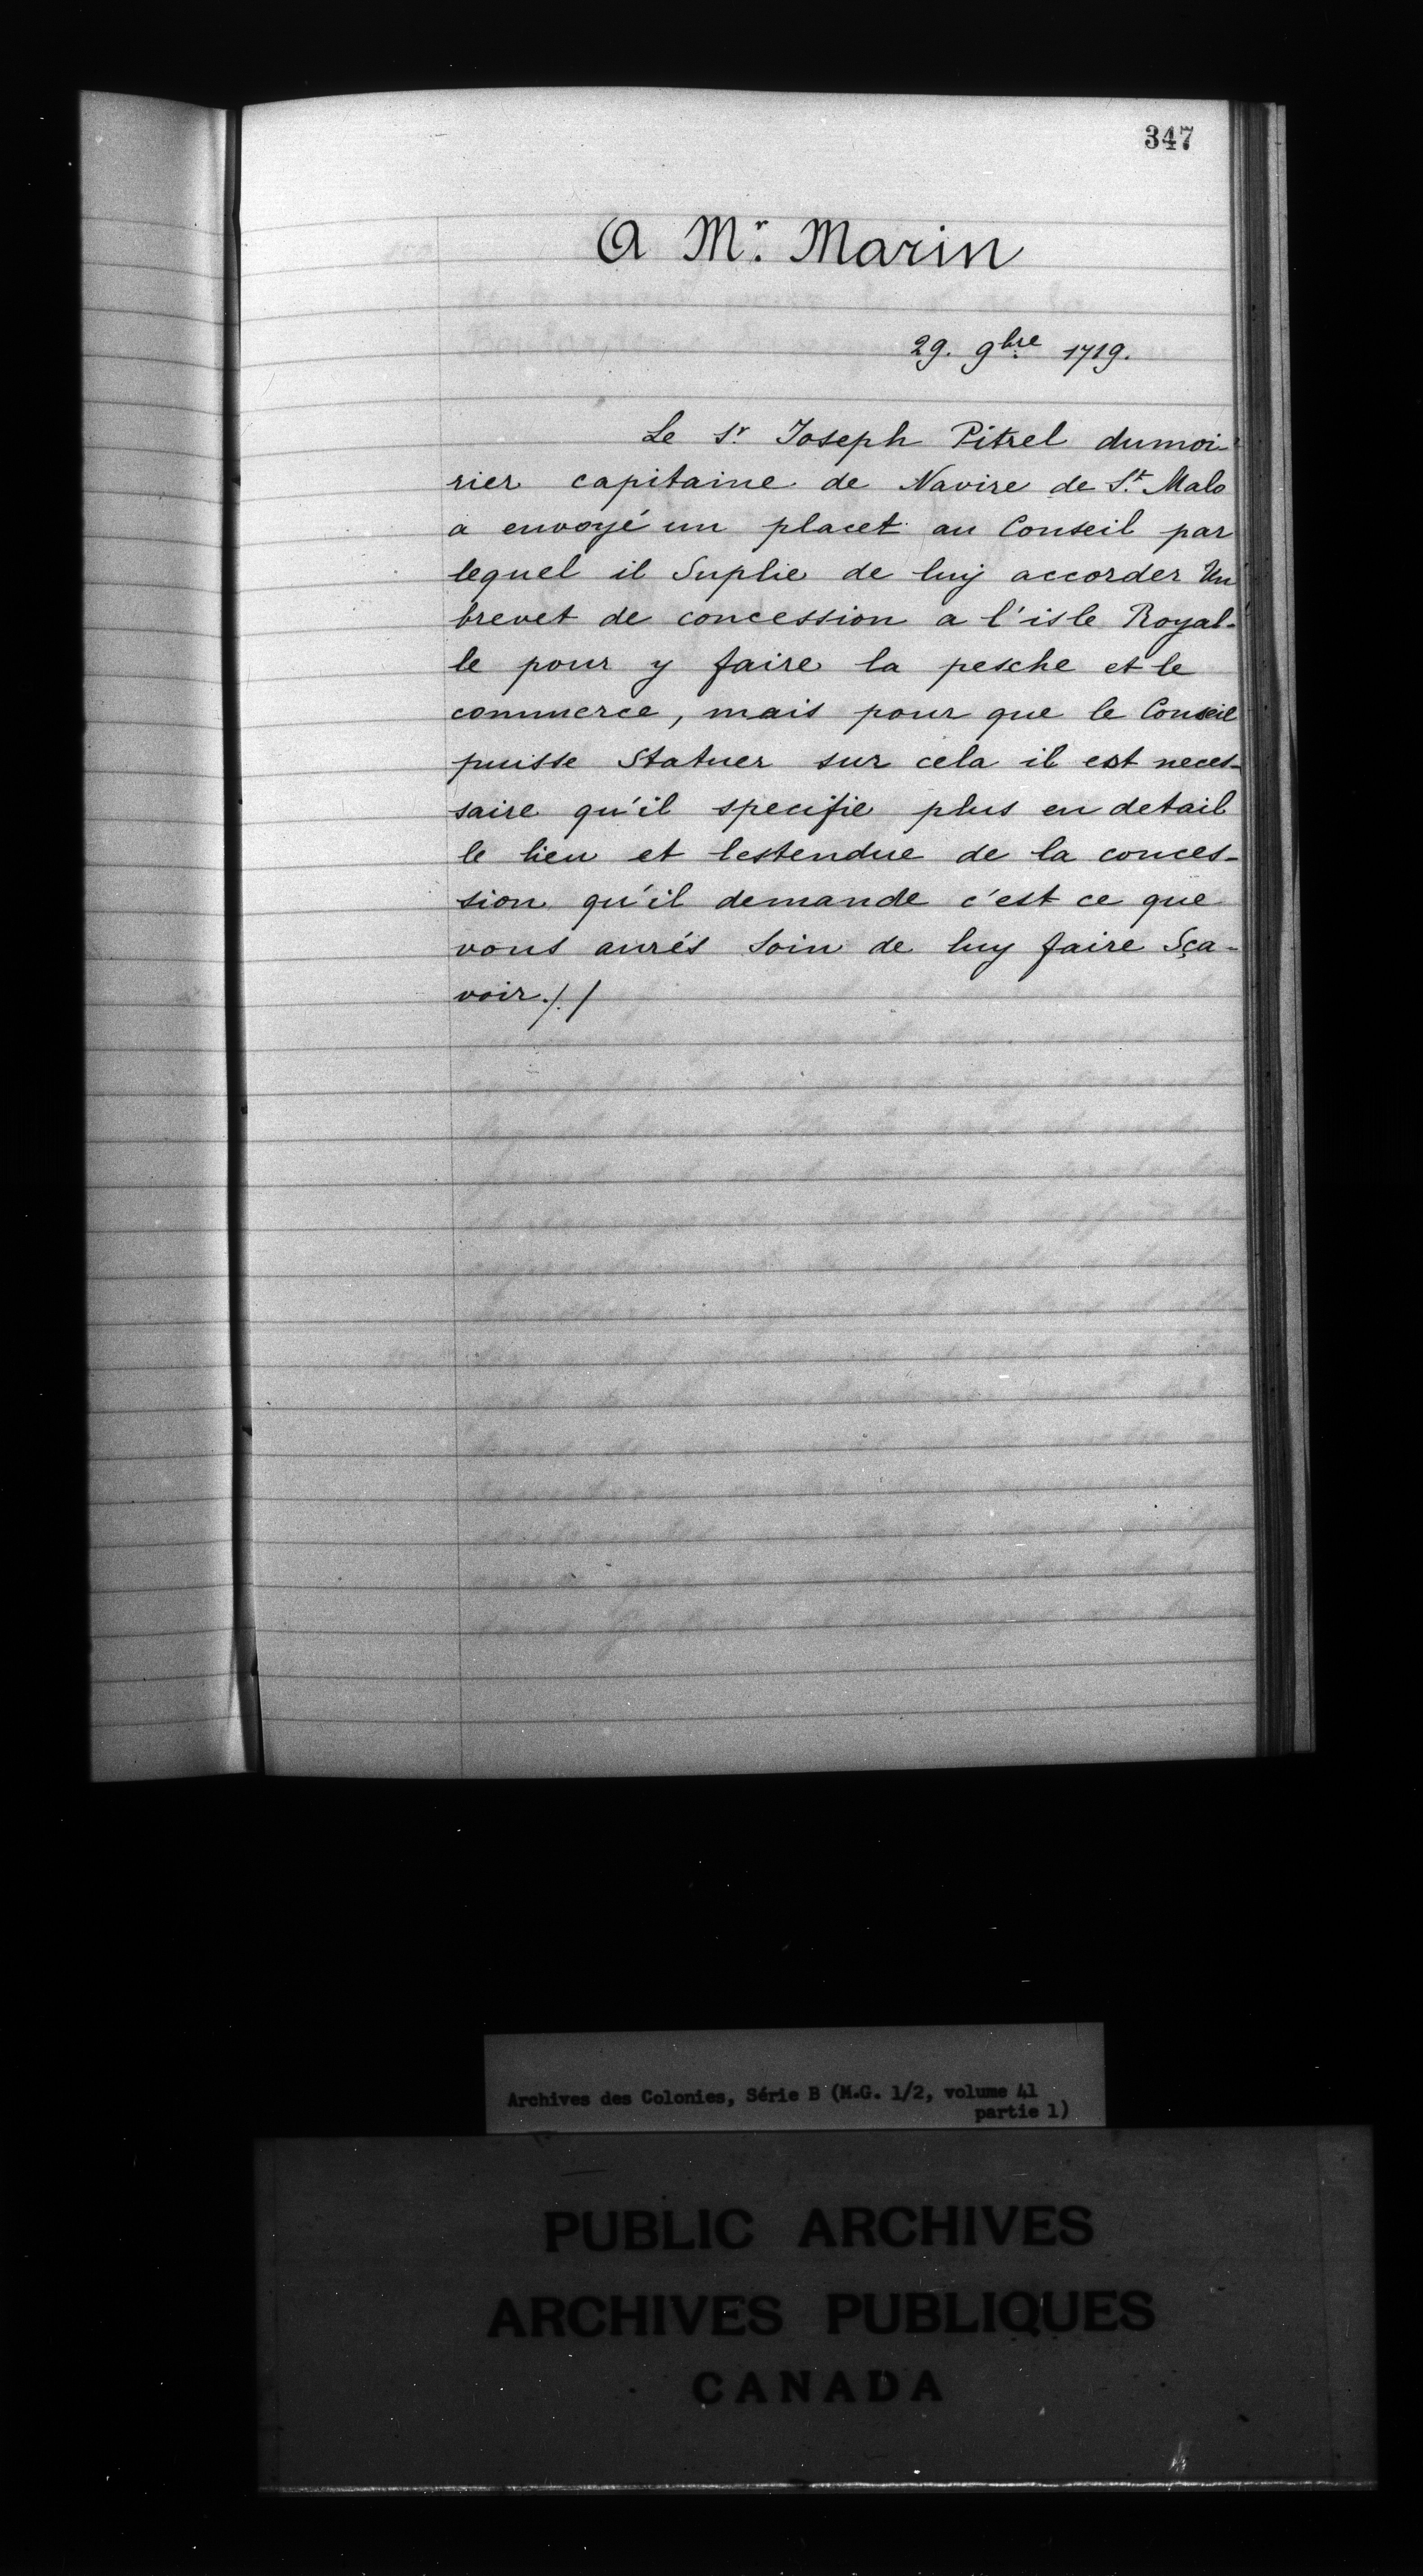 347
A Mr. Marin
29. 9bre 1719.
Le Sr. Joseph Pitrel dumoi-
rier capitaine de Navire de St. Malo
a envoyé un placet au Conseil par
lequel il Suplie de luy accorder Un
brevet de concession a l'isle Royal-
le pour y faire la pesche et le
commerce, mais pour que le Conseil
puisse Statuer sur cela il est neces-
saire qu'il specifie plus en detail
le lieu et lestendue de la conces-
sion qu'il demande c'est ce que
vous aurés Soin de luy faire Sça-
voir./. /
Archives des Colonies, Série B (M.G. 1/2, volume 41
partie 1)
PUBLIC ARCHIVES
ARCHIVES PUBLIQUES
CANADA